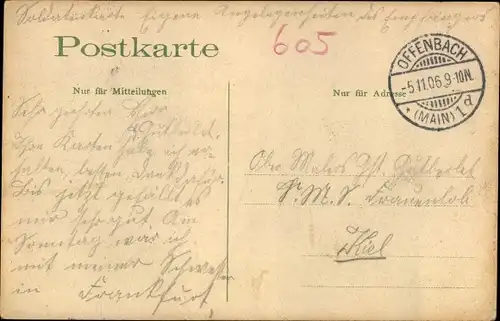 Soldatenkarte Eigene Angelegenheiten des Empfängers
605
Postkarte
OFFENBACH
-5.11.06.9-10N.
* (MAIN) 1d
Nur für Mitteilungen
Nur für Adresse
Sehr geehrter Herr
Gutberlet.
Ihre Karten habe ich er-
halten, besten Dank dafür.
Bis jetzt gefällt es
mir sehr gut. Am
Sonntag war ich
mit meiner Schwester
in Frankfurt
Gutberlet
S.M.S. Frauenlob
Kiel